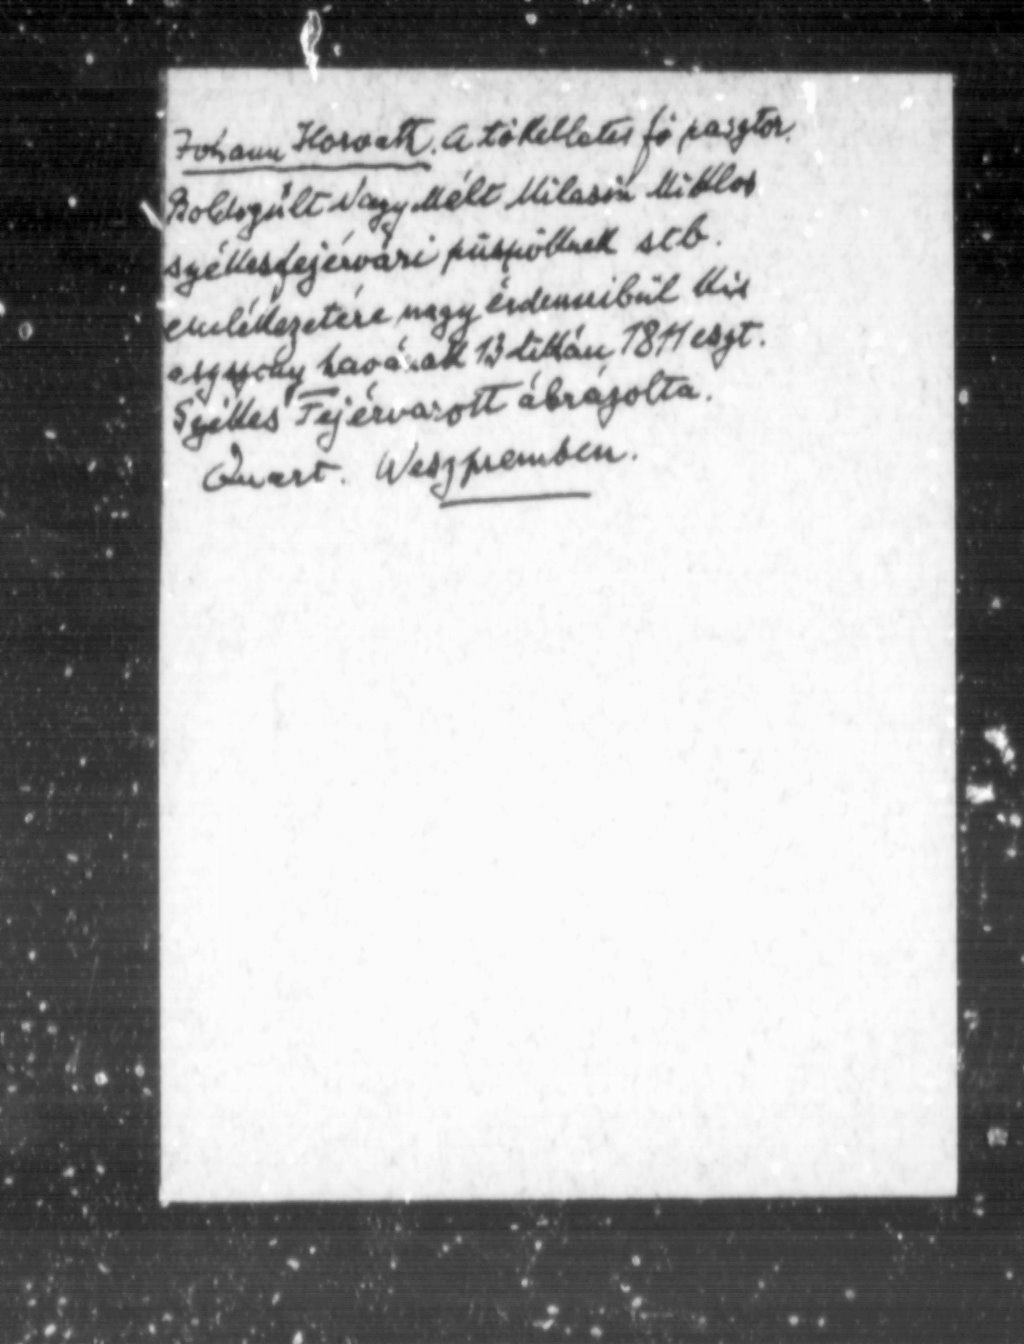 Johann Horvath. A tökelletes fö pasztor.
Boldogúlt Nagy Mélt Milasin Miklos
székesfejérvári püspöknek stb.
emlékezetére nagy érdemeibül Kis
aszszony havának 13dikkán 1811 eszt.
Székes Fejérvarott ábrázolta.
Quart. Weszpremben.